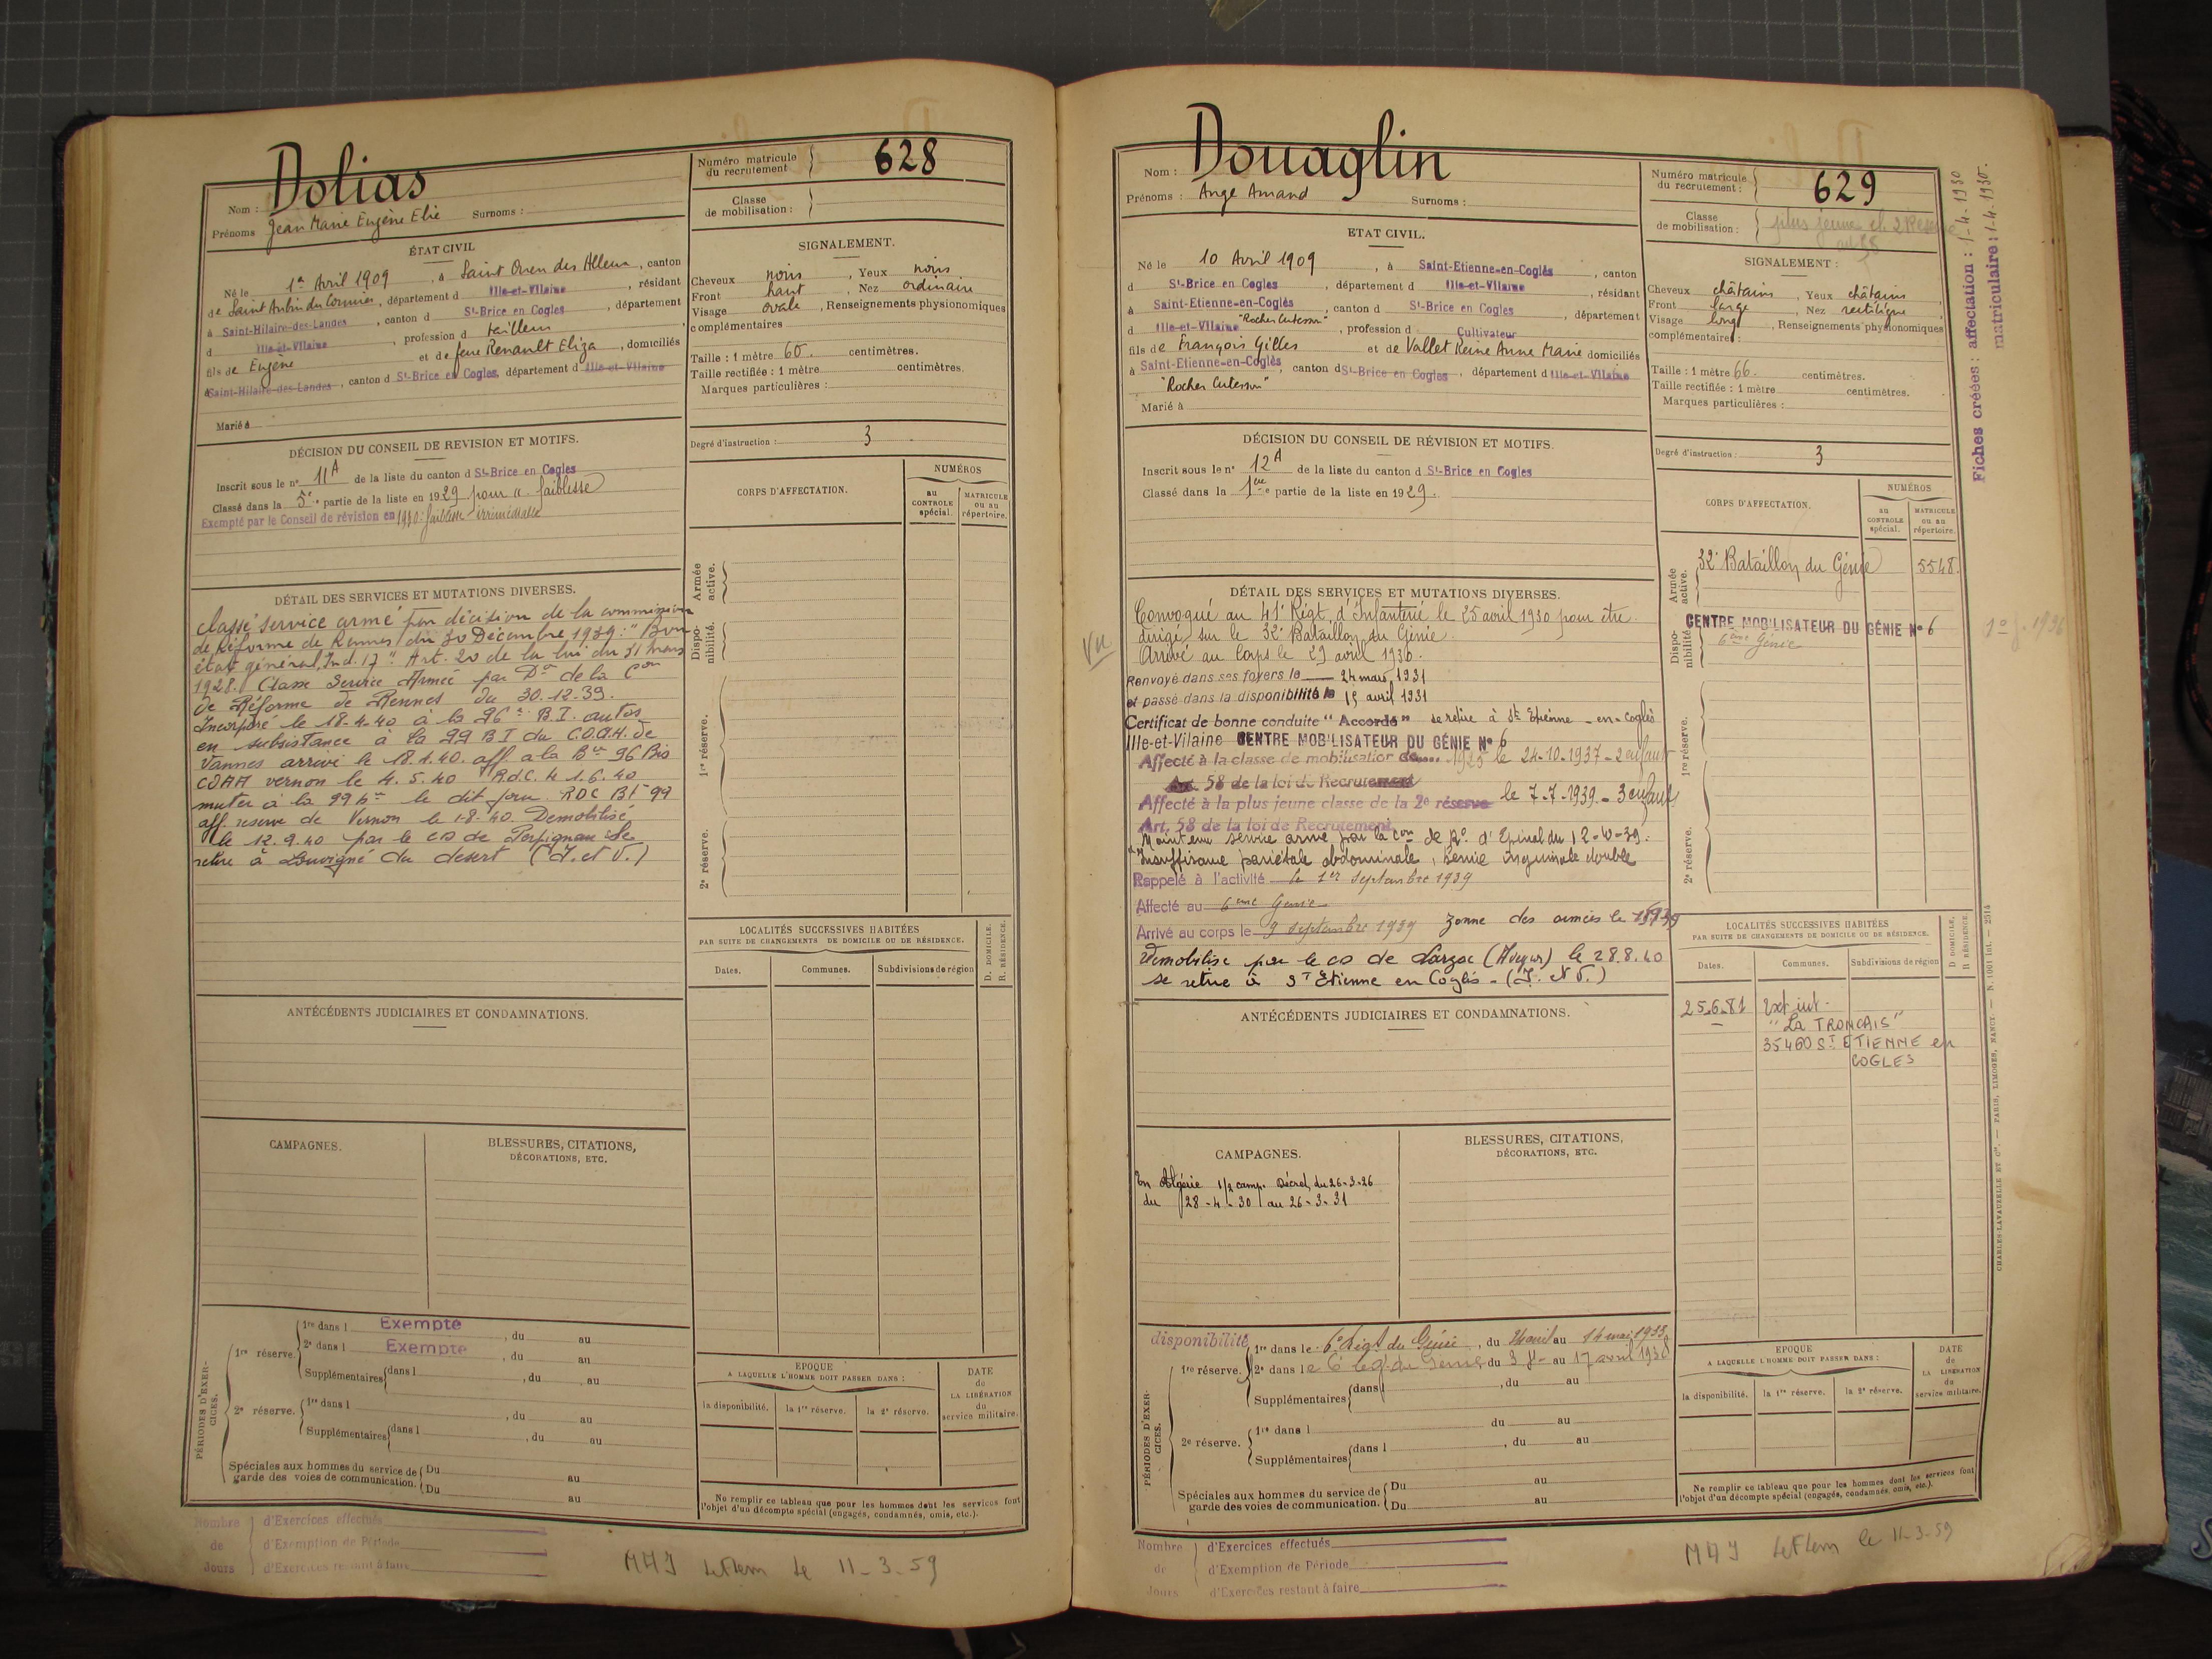 Nom : Dolias
Prénoms Jean Marie Eugène Elie Surnoms :
Numéro matricule du recrutement 628
Classe de mobilisation :
ÉTAT CIVIL
Né le 1er Avril 1909, à Saint Ouen des Alleux, canton
de Saint Aubin du Cormier, département d Ille-et-Vilaine, résidant
à Saint-Hilaire-des-Landes, canton d St-Brice en Cogles, département
d Ille-et-Vilaine, profession d tailleur
fils de Eugène et de feue Renault Eliza, domiciliés
à Saint-Hilaire-des-Landes, canton d St-Brice en Cogles, département d Ille-et-Vilaine
Marié à
SIGNALEMENT.
Cheveux noirs, Yeux noirs
Front haut, Nez ordinaire
Visage ovale, Renseignements physionomiques
complémentaires
Taille : 1 mètre 60. centimètres.
Taille rectifiée : 1 mètre centimètres.
Marques particulières :
Degré d'instruction : 3
DÉCISION DU CONSEIL DE REVISION ET MOTIFS.
Inscrit sous le n° 11A de la liste du canton d St-Brice en Cogles
Classé dans la 5e partie de la liste en 1929 pour "faiblesse
Exempté par le Conseil de révision en 1930: faiblesse irrémédiable
CORPS D'AFFECTATION.
NUMÉROS
au CONTROLE spécial.
MATRICULE ou au répertoire.
Armée active.
Disponibilité.
1re réserve.
2e réserve.
DÉTAIL DES SERVICES ET MUTATIONS DIVERSES.
Classé service armé par décision de la commission
de Réforme de Rennes du 30 Décembre 1939 : "Bon
état général, Ind. 17". Art. 20 de la loi du 31 mars
1928. Classé Service Armée par Don de la Con
de Réforme de Rennes du 30.12.39.
Incorporé le 18-4-40 à la 96e B.I. autos
en subsistance à la 99 BI du C.O.A.H. de
Vannes arrivé le 18.4.40. aff. à la Bie 96 Bis
COAH vernon le 4.5.40 R.d.C. le 1.6.40
muter à la 99 bie le dit jour. RDC BI 99
aff. reserve de Vernon le 1-8-40 Demobilisé
le 12.9.40 par le CD de Perpignan Se
retire à Louvigné du desert (I. et V.)
ANTÉCÉDENTS JUDICIAIRES ET CONDAMNATIONS.
LOCALITÉS SUCCESSIVES HABITÉES
PAR SUITE DE CHANGEMENTS DE DOMICILE OU DE RÉSIDENCE.
Dates. Communes. Subdivisions de région
D. DOMICILE. R. RÉSIDENCE.
CAMPAGNES.
BLESSURES, CITATIONS,
DÉCORATIONS, ETC.
PÉRIODES D'EXERCICES.
1re réserve. 1re dans l Exempté, du au
2e dans l Exempté, du au
Supplémentaires dans l, du au
2e réserve. 1re dans l, du au
Supplémentaires dans l, du au
Spéciales aux hommes du service de garde des voies de communication. Du au
Du au
EPOQUE
A LAQUELLE L'HOMME DOIT PASSER DANS :
la disponibilité. la 1re réserve. la 2e réserve.
DATE de LA LIBÉRATION du service militaire.
Ne remplir ce tableau que pour les hommes dont les services font
l'objet d'un décompte spécial (engagés, condamnés, omis, etc.).
Nombre de Jours
d'Exercices effectués
d'Exemption de Période
d'Exercices restant à faire
Le 11-3-59
Nom : Douaglin
Prénoms : Ange Amand Surnoms :
Numéro matricule du recrutement : 629
Classe de mobilisation : plus jeune cl. 2 Réserve
Fiches créées : affectation : 1-4-1930
matriculaire : 1-4-1930.
ETAT CIVIL.
Né le 10 Avril 1909, à Saint-Etienne-en-Coglès, canton
d St-Brice en Cogles, département d Ille-et-Vilaine, résidant
à Saint-Etienne-en-Coglès, canton d St-Brice en Cogles, département
d Ille-et-Vilaine "Rocher Cuterson", profession d Cultivateur
fils de François Gilles et de Vallet Reine Anne Marie domiciliés
à Saint-Etienne-en-Coglès, canton d St-Brice en Cogles, département d Ille-et-Vilaine
"Rocher Cuterson"
Marié à
SIGNALEMENT :
Cheveux châtains, Yeux châtains
Front large, Nez rectiligne
Visage long, Renseignements physionomiques
complémentaires :
Taille : 1 mètre 66. centimètres.
Taille rectifiée : 1 mètre centimètres.
Marques particulières :
Degré d'instruction : 3
DÉCISION DU CONSEIL DE RÉVISION ET MOTIFS.
Inscrit sous le n° 12A de la liste du canton d St-Brice en Cogles
Classé dans la 1ère partie de la liste en 1929.
CORPS D'AFFECTATION.
NUMÉROS
au CONTROLE spécial.
MATRICULE ou au répertoire.
Armée active. 32e Bataillon du Génie 5548.
Disponibilité CENTRE MOBILISATEUR DU GÉNIE N° 6
6ème Génie
1re réserve.
2e réserve.
DÉTAIL DES SERVICES ET MUTATIONS DIVERSES.
VU
Convoqué au 41e Régt. d'Infanterie le 25 avril 1930 pour être
dirigé sur le 32e Bataillon du Génie.
Arrivé au Corps le 29 avril 1930.
Renvoyé dans ses foyers le 24 mars 1931
et passé dans la disponibilité le 15 avril 1931
Certificat de bonne conduite "Accordé" se retire à St Etienne-en-Coglès
Ille-et-Vilaine CENTRE MOBILISATEUR DU GÉNIE N° 6
Affecté à la classe de mobilisation de 1925 le 24-10-1937 - 2 enfants
Art. 58 de la loi de Recrutement
Affecté à la plus jeune classe de la 2e réserve le 7-7-1939 - 3 enfants
Art. 58 de la loi de Recrutement.
Maintenu service armé par la Con de R°. d'Epinal du 12-10-39.
"Insuffisance pariétale abdominale, hernie inguinale double
Rappelé à l'activité le 1er septembre 1939
Affecté au 6ème Génie
Arrivé au corps le 9 septembre 1939 Zonne des armées le
Démobilisé par le CD de Larzac (Aveyron) le 28.8.40
se retire à St Etienne en Coglès - (I. et V.)
ANTÉCÉDENTS JUDICIAIRES ET CONDAMNATIONS.
LOCALITÉS SUCCESSIVES HABITÉES
PAR SUITE DE CHANGEMENTS DE DOMICILE OU DE RÉSIDENCE.
Dates. Communes. Subdivisions de région
D DOMICILE. R RÉSIDENCE.
25.6.81
"La TRONCAIS"
35460 ST ETIENNE en
COGLES
CAMPAGNES.
En Algérie 1/2 camp. Décret du 26-3-26
du 28-4-30 au 26-3-31
BLESSURES, CITATIONS,
DÉCORATIONS, ETC.
PÉRIODES D'EXERCICES.
disponibilité
1re réserve. 1re dans le 6e Régt du Génie, du 24 avril au 14 mai 1933
2e dans le 6e Rég. du Génie du 3 au 17 avril 193
Supplémentaires dans l, du au
2e réserve. 1re dans l du au
Supplémentaires dans l, du au
Spéciales aux hommes du service de garde des voies de communication. Du au
Du au
EPOQUE
A LAQUELLE L'HOMME DOIT PASSER DANS :
la disponibilité. la 1re réserve. la 2e réserve.
DATE de LA LIBÉRATION du service militaire.
Ne remplir ce tableau que pour les hommes dont les services font
l'objet d'un décompte spécial (engagés, condamnés, omis, etc.).
CHARLES-LAVAUZELLE ET Cie. — PARIS, LIMOGES, NANCY. — N. 1001 int. — 2514
Nombre de Jours
d'Exercices effectués
d'Exemption de Période
d'Exercices restant à faire
le 11-3-59